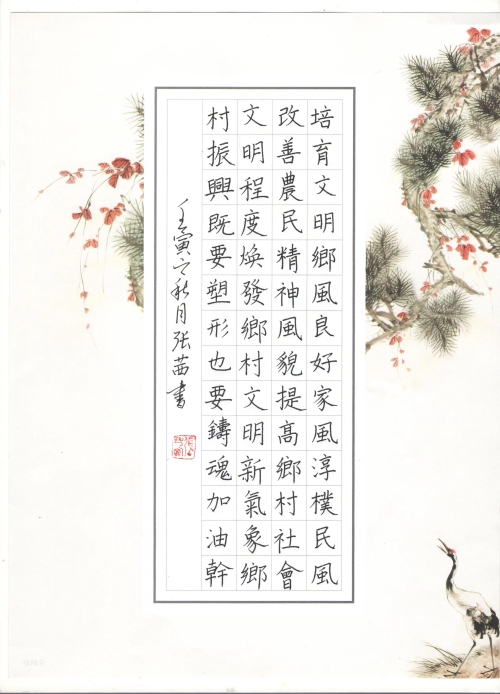 培育文明鄉風良好家風淳樸民風
改善農民精神風貌提高鄉村社會
文明程度焕發鄉村文明新氣象鄉
村振興既要塑形也要鑄魂加油幹
壬寅之秋月张茜書